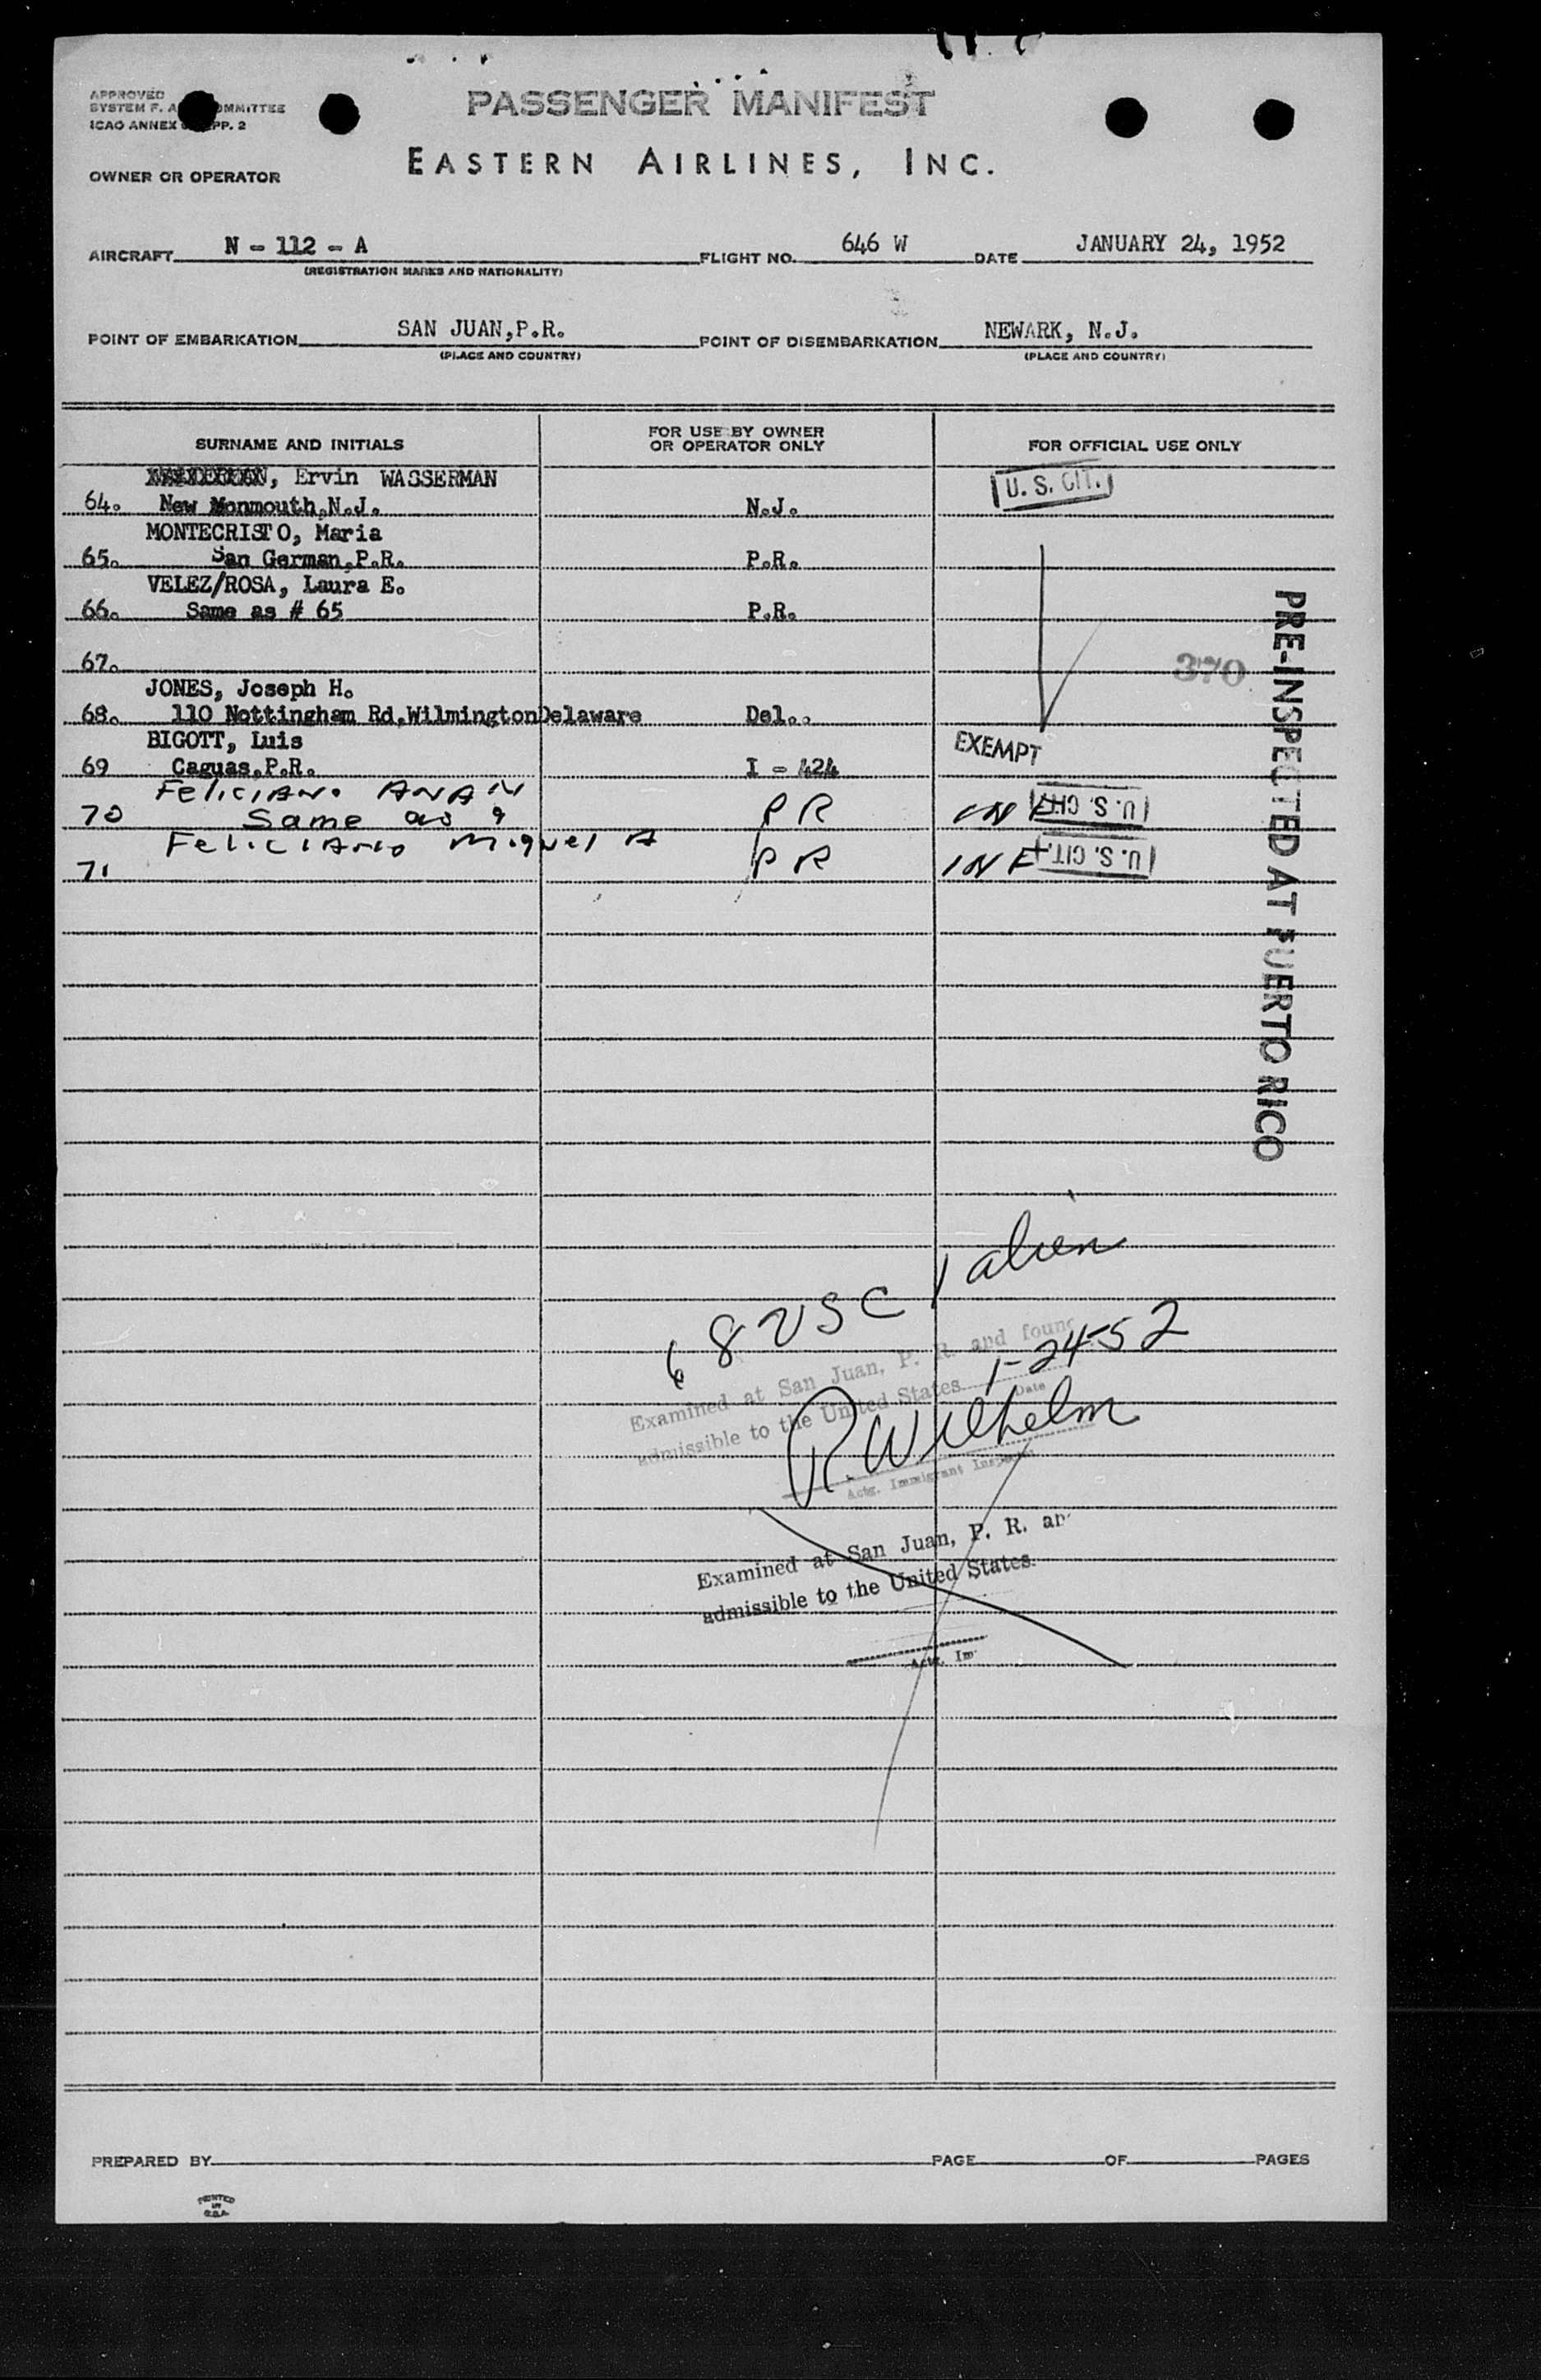 APPROVED
SYSTEM F. A. COMMITTEE
ICAO ANNEX APP. 2
PASSENGER MANIFEST
OWNER OR OPERATOR
EASTERN AIRLINES, INC.
AIRCRAFT N - 112 - A FLIGHT NO. 646 W DATE JANUARY 24, 1952
(REGISTRATION MARKS AND NATIONALITY)
POINT OF EMBARKATION SAN JUAN,P.R. POINT OF DISEMBARKATION NEWARK, N.J.
(PLACE AND COUNTRY) (PLACE AND COUNTRY)
SURNAME AND INITIALS FOR USE BY OWNER OR OPERATOR ONLY FOR OFFICIAL USE ONLY
, Ervin WASSERMAN
64. New Monmouth,N.J. N.J. U. S. CIT.
MONTECRISTO, Maria
65. San German,P.R. P.R.
VELEZ/ROSA, Laura E.
66. Same as # 65 P.R.
67. 370
JONES, Joseph H.
68. 110 Nottingham Rd,Wilmington Delaware Del..
BIGOTT, Luis
69 Caguas,P.R. I - 424 EXEMPT
Feliciano ANA N
70 Same as 9 PR INF U. S. CIT.
Feliciano Miguel A
71 PR INF U. S. CIT.
PRE-INSPECTED AT PUERTO RICO
68 USC 1 alien
Examined at San Juan, P. R. and found
admissible to the United States 1-24-52
Date
R. Wilhelm
Actg. Immigrant Inspector
Examined at San Juan, P. R. an
admissible to the United States.
Actg. Im
PREPARED BY PAGE OF PAGES
PRINTED
IN
U.S.A.